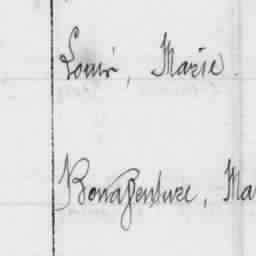 Louis, Marie
Bonaventure, Ma